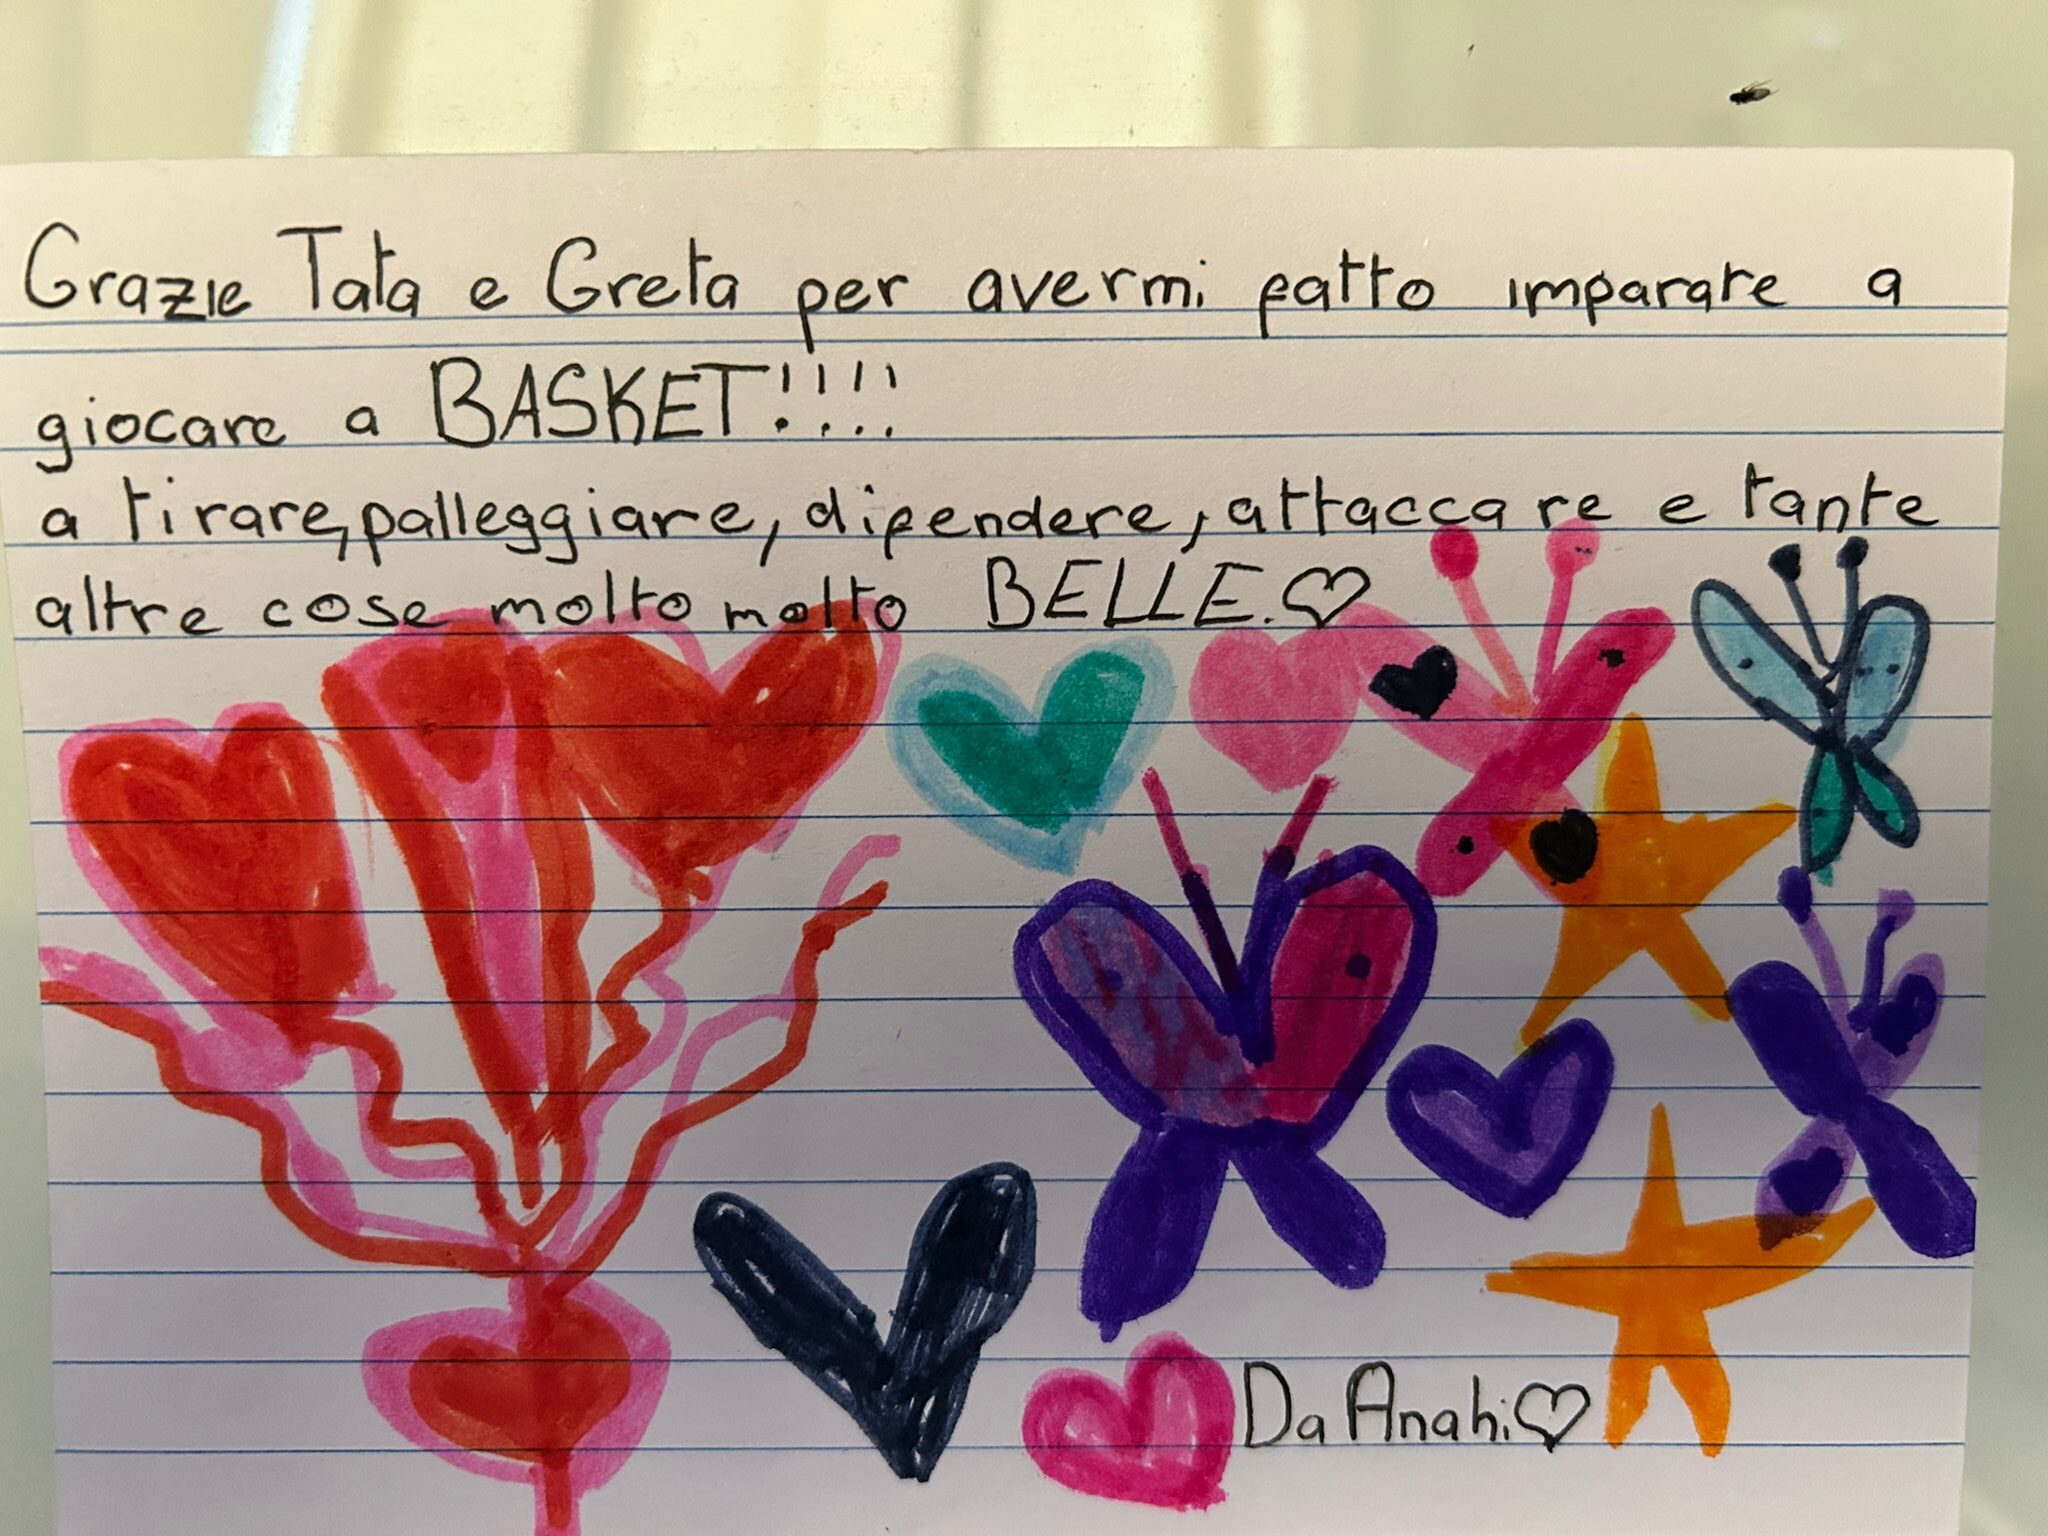 Grazie Tata e Greta per avermi fatto imparare a
giocare a BASKET!!!!
a tirare, palleggiare, difendere, attaccare e tante
altre cose molto molto BELLE.♡
Da Anahi♡